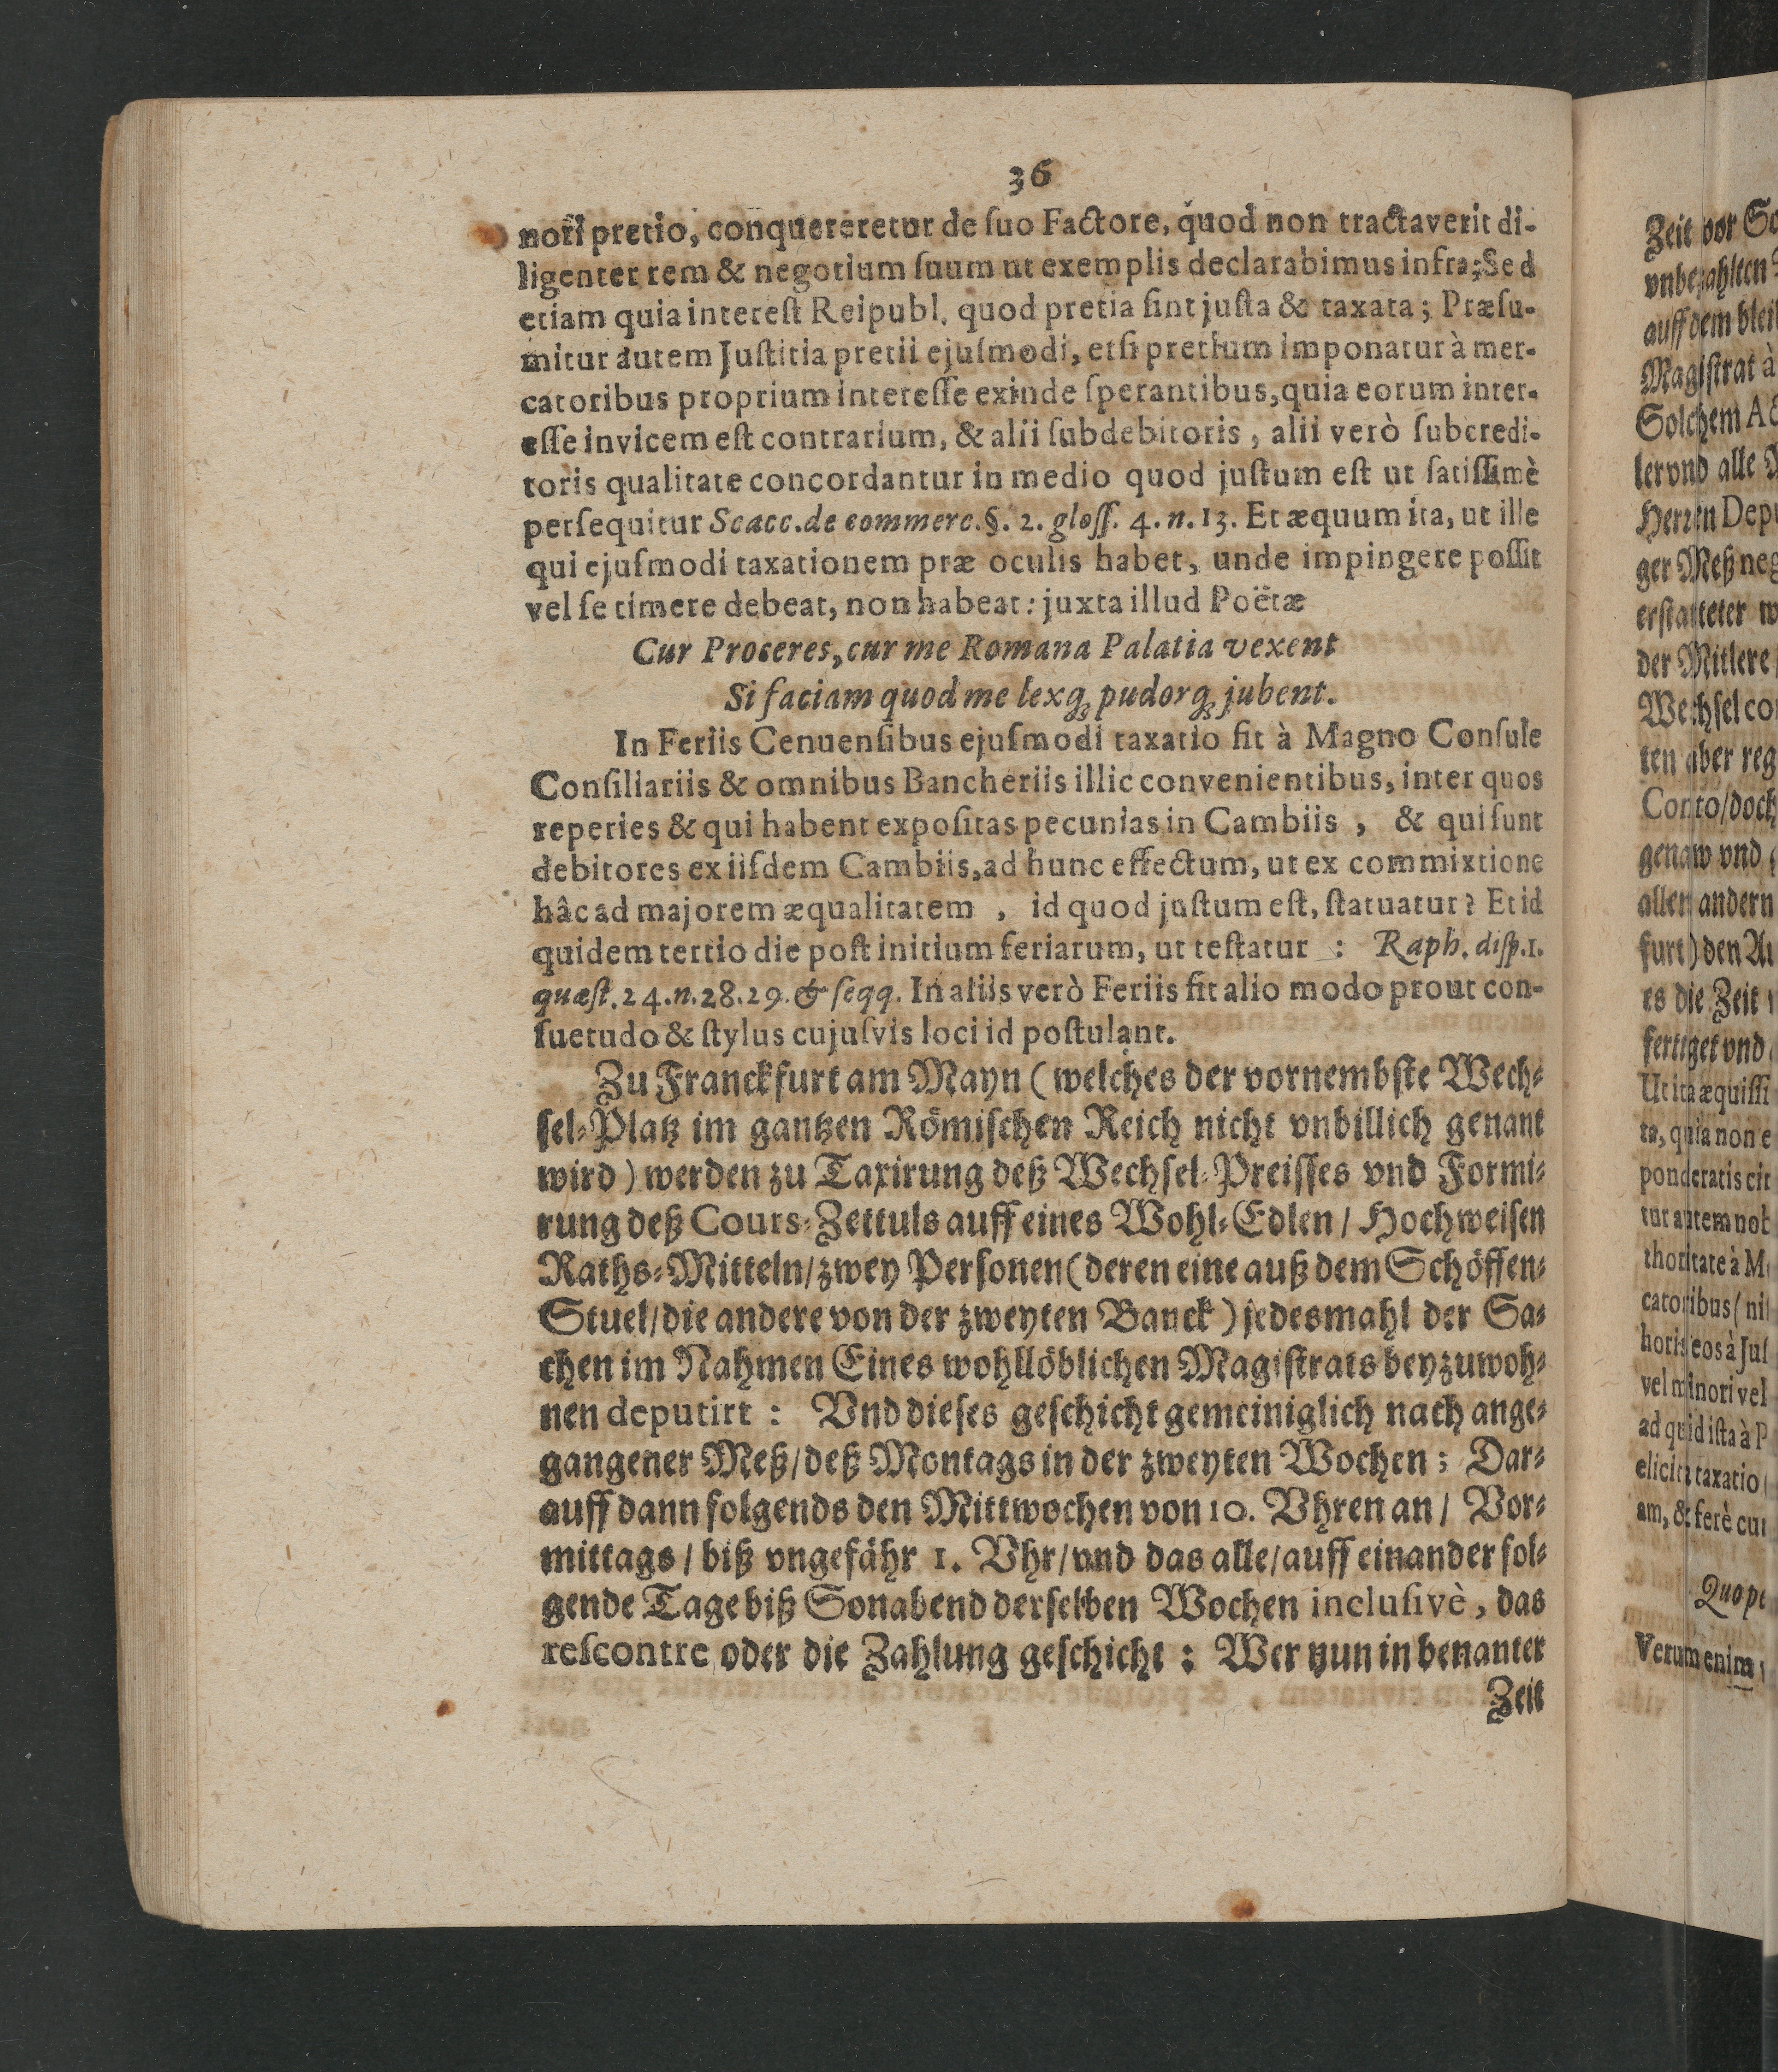 36
nori pretio, conquereretur de ſuo Factore, quod non tractaverit di-
ligenter rem & negotium ſuum ut exemplis declarabimus infra; Sed
etiam quia intereſt Reipubl. quod pretia ſint juſta & taxata; Præſu-
mitur autem Juſtitia pretii ejuſmodi, etſi pretium imponatur à mer-
catoribus proprium intereſſe exinde ſperantibus, quia eorum inter-
eſſe invicem eſt contrarium, & alii ſubdebitoris, alii verò ſubcredi-
toris qualitate concordantur in medio quod juſtum eſt ut ſatiſſimè
perſequitur Scacc. de commerc. §. 2. gloſſ. 4. n. 13. Et æquum ita, ut ille
qui ejuſmodi taxationem præ oculis habet, unde impingere poſſit
vel ſe timere debeat, non habeat: juxta illud Poëtæ
Cur Proceres, cur me Romana Palatia vexent
Si faciam quod me lexq; pudorq; jubent.
In Feriis Cenuenſibus ejuſmodi taxatio fit à Magno Conſule
Conſiliariis & omnibus Bancheriis illic convenientibus, inter quos
reperies & qui habent expoſitas pecunias in Cambiis, & qui ſunt
debitores ex iiſdem Cambiis, ad hunc effectum, ut ex commixtione
hâc ad majorem æqualitatem, id quod juſtum eſt, ſtatuatur? Et id
quidem tertio die poſt initium feriarum, ut teſtatur: Raph. diſp. 1.
quæſt. 24. n. 28. 29. & ſeqq. In aliis verò Feriis fit alio modo prout con-
ſuetudo & ſtylus cujuſvis loci id poſtulant.
Zu Franckfurt am Mayn (welches der vornembſte Wech-
ſel-Platz im gantzen Römiſchen Reich nicht vnbillich genant
wird) werden zu Taxirung deß Wechſel-Preiſſes vnd Formi-
rung deß Cours-Zettuls auff eines Wohl-Edlen / Hochweiſen
Raths-Mitteln / zwey Perſonen (deren eine auß dem Schöffen-
Stuel / die andere von der zweyten Banck) jedesmahl der Sa-
chen im Nahmen Eines wohllöblichen Magiſtrats beyzuwoh-
nen deputirt: Vnd dieſes geſchicht gemeiniglich nach ange-
gangener Meß / deß Montags in der zweyten Wochen; Dar-
auff dann folgends den Mittwochen von 10. Vhren an / Vor-
mittags / biß vngefähr 1. Vhr / vnd das alle / auff einander fol-
gende Tage biß Sonabend derſelben Wochen incluſivè, das
reſcontre oder die Zahlung geſchicht: Wer nun in benanter
Zeit
Zeit vor
vnbezahlten
auff dem
Magiſtrat à
Solchem
ler vnd alle
Herren
ger Meß
erſtatteter
der Mitlere
Wechſel
ten aber
Conto / doch
genaw vnd
allen andern
furt) den
es die Zeit
fertiget vnd
Ut ita
ta, quia non
ponderatis
tur autem
thoritate à
catoribus
horis eos à
vel minori vel
ad quid iſta à
elicita taxatio
am, & ferè
Verum enim